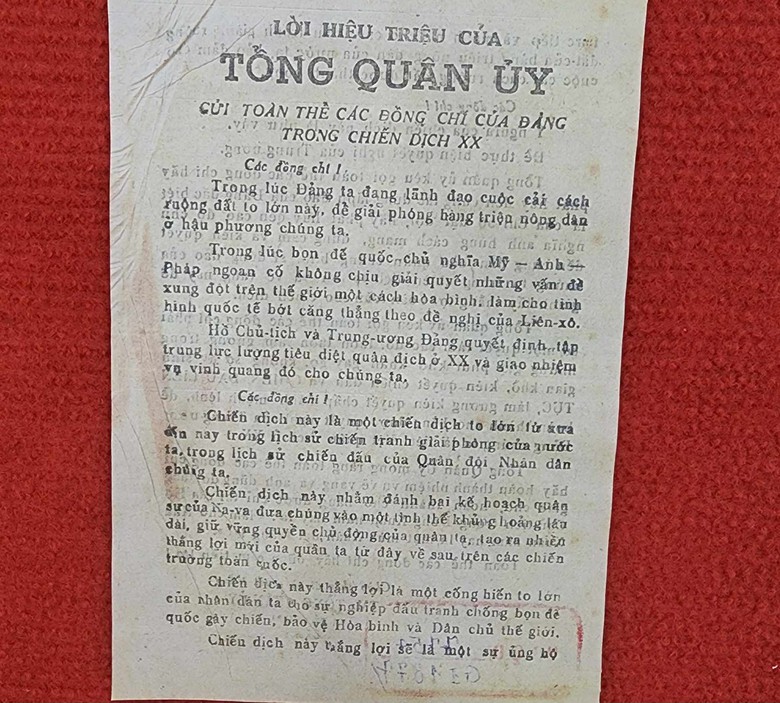 LỜI HIỆU TRIỆU CỦA
TỔNG QUÂN ỦY
GỬI TOÀN THỂ CÁC ĐỒNG CHÍ CỦA ĐẢNG
TRONG CHIẾN DỊCH XX
Các đồng chí !
Trong lúc Đảng ta đang lãnh đạo cuộc cải cách
ruộng đất to lớn này, để giải phóng hàng triệu nông dân
ở hậu phương chúng ta.
Trong lúc bọn đế quốc chủ nghĩa Mỹ — Anh —
Pháp ngoan cố không chịu giải quyết những vấn đề
xung đột trên thế giới một cách hòa bình, làm cho tình
hình quốc tế bớt căng thẳng theo đề nghị của Liên-xô.
Hồ Chủ-tịch và Trung-ương Đảng quyết định tập
trung lực lượng tiêu diệt quân địch ở XX và giao nhiệm
vụ vinh quang đó cho chúng ta.
Các đồng chí !
Chiến dịch này là một chiến dịch to lớn từ xưa
đến nay trong lịch sử chiến tranh giải phóng của nước
ta, trong lịch sử chiến đấu của Quân đội Nhân dân
chúng ta.
Chiến dịch này nhằm đánh bại kế hoạch quân
sự của Na-va đưa chúng vào một tình thế khủng hoảng lâu
dài, giữ vững quyền chủ động của quân ta, tạo ra nhiều
thắng lợi mới của quân ta từ đây về sau trên các chiến
trường toàn quốc.
Chiến dịch này thắng lợi là một cống hiến to lớn
của nhân dân ta cho sự nghiệp đấu tranh chống bọn đế
quốc gây chiến, bảo vệ Hòa bình và Dân chủ thế giới.
Chiến dịch này thắng lợi sẽ là một sự ủng hộ